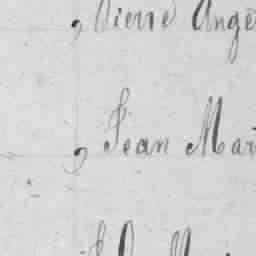 , Pierre Ange
, Jean Mar